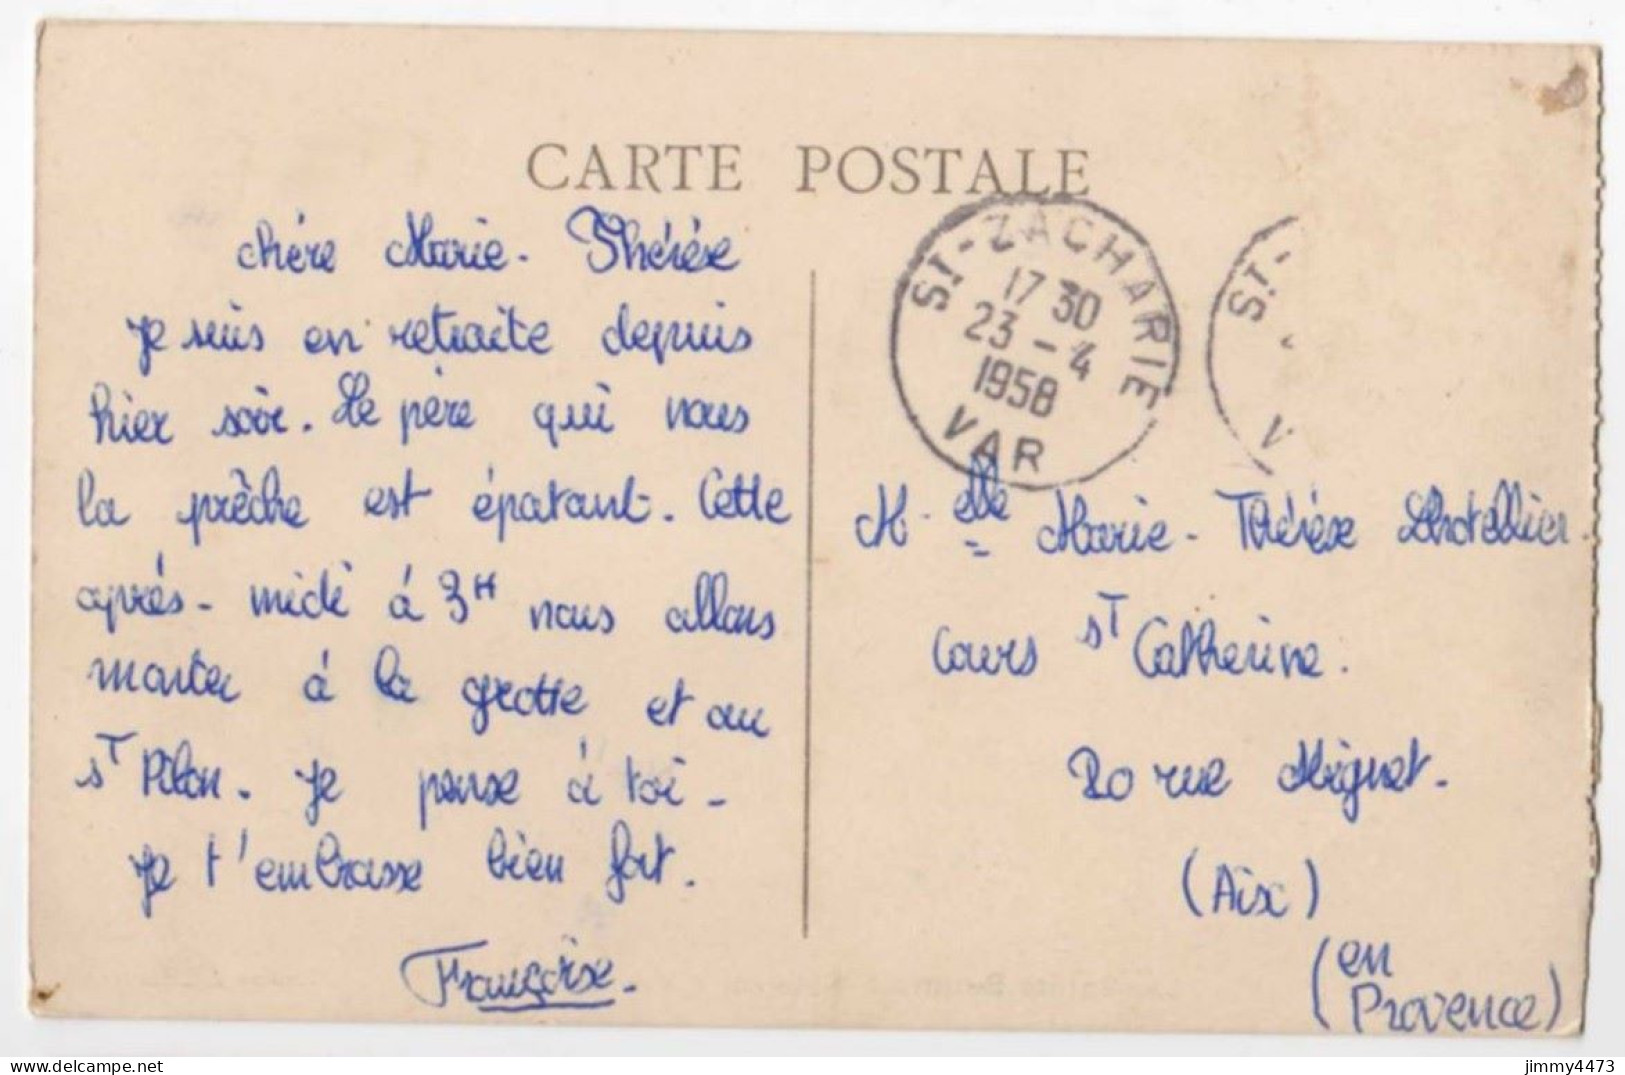 CARTE POSTALE
chère Marie-Thérèse
je suis en retraite depuis
hier soir. Le père qui nous
la prêche est épatant. Cette
après-midi à 3H nous allons
monter à la grotte et au
ST Pilon. Je pense à toi-
je t'embrasse bien fort.
Françoise.
ST-ZACHARIE
17 30
23-4
1958
VAR
ST-
V
M-elle Marie-Thérèse Lhotellier.
Cours ST Catherine.
20 rue Mignet.
(Aix)
(en
Provence)
jimmy4473